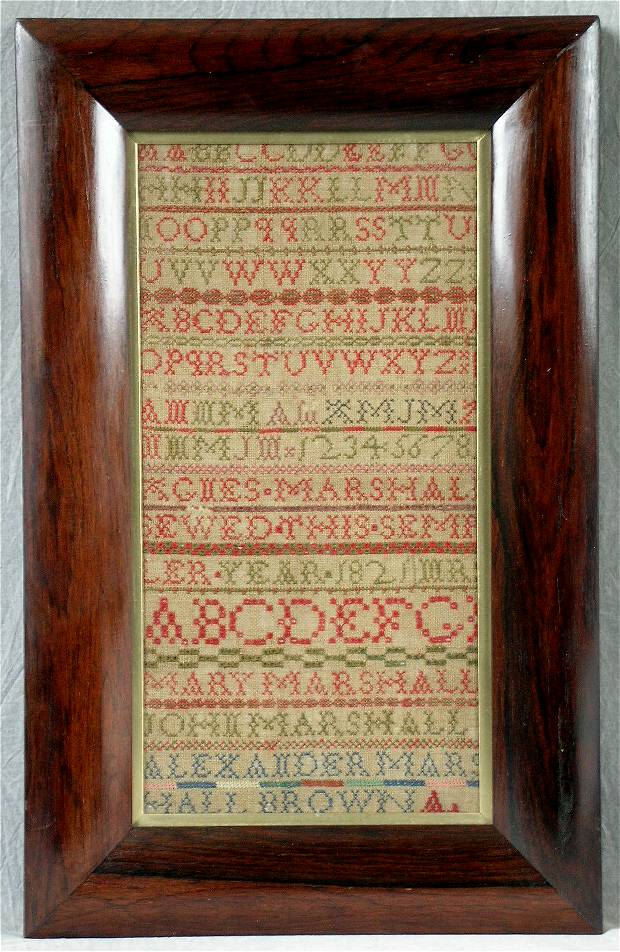 AABBCCDDEEFFG
HHIIJJKKLLMMN
OOPPQQRRSSTTU
UVVWWXXYYZZ
ABCDEFGHIJKLM
OPQRSTUVWXYZ
AM WM AMJM
WMJM 12345678
AGNES·MARSHAL
SEWED·THIS·SEMP
LER·YEAR·1821 WR
ABCDEFG
MARY MARSHALL
IOHN MARSHALL
ALEXANDER MARS
HALL BROWN A